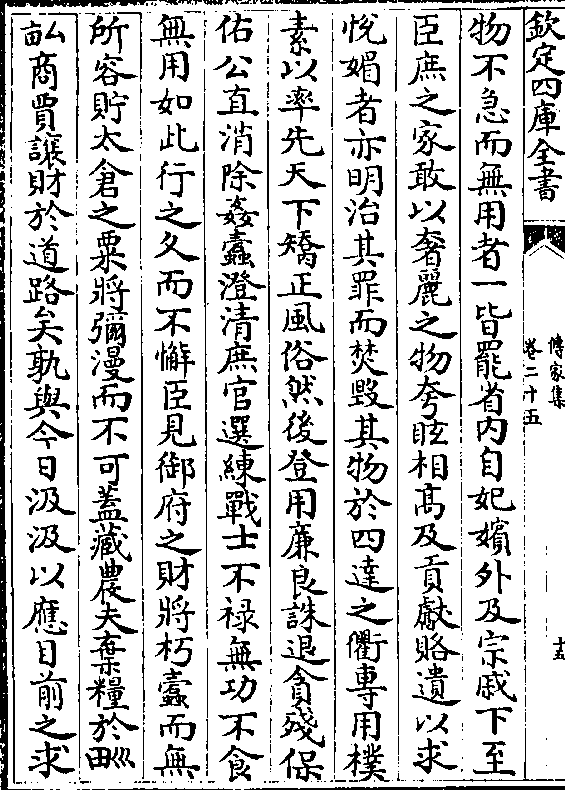 欽定四庫全書
傳家集
卷二十五
十五
物不急而無用者一皆罷省内自妃嬪外及宗戚下至
臣庶之家敢以奢麗之物夸眩相髙及貢獻賂遺以求
悅媚者亦明治其罪而焚毀其物於四達之衢專用樸
素以率先天下矯正風俗然後登用亷良誅退貪殘保
佑公直消除姦蠹澄清庶官選練戰士不禄無功不食
無用如此行之久而不懈臣見御府之財將朽蠹而無
所容貯太倉之粟將彌漫而不可蓋藏農夫棄糧於𤱶
畆商賈讓財於道路矣孰與今日汲汲以應目前之求